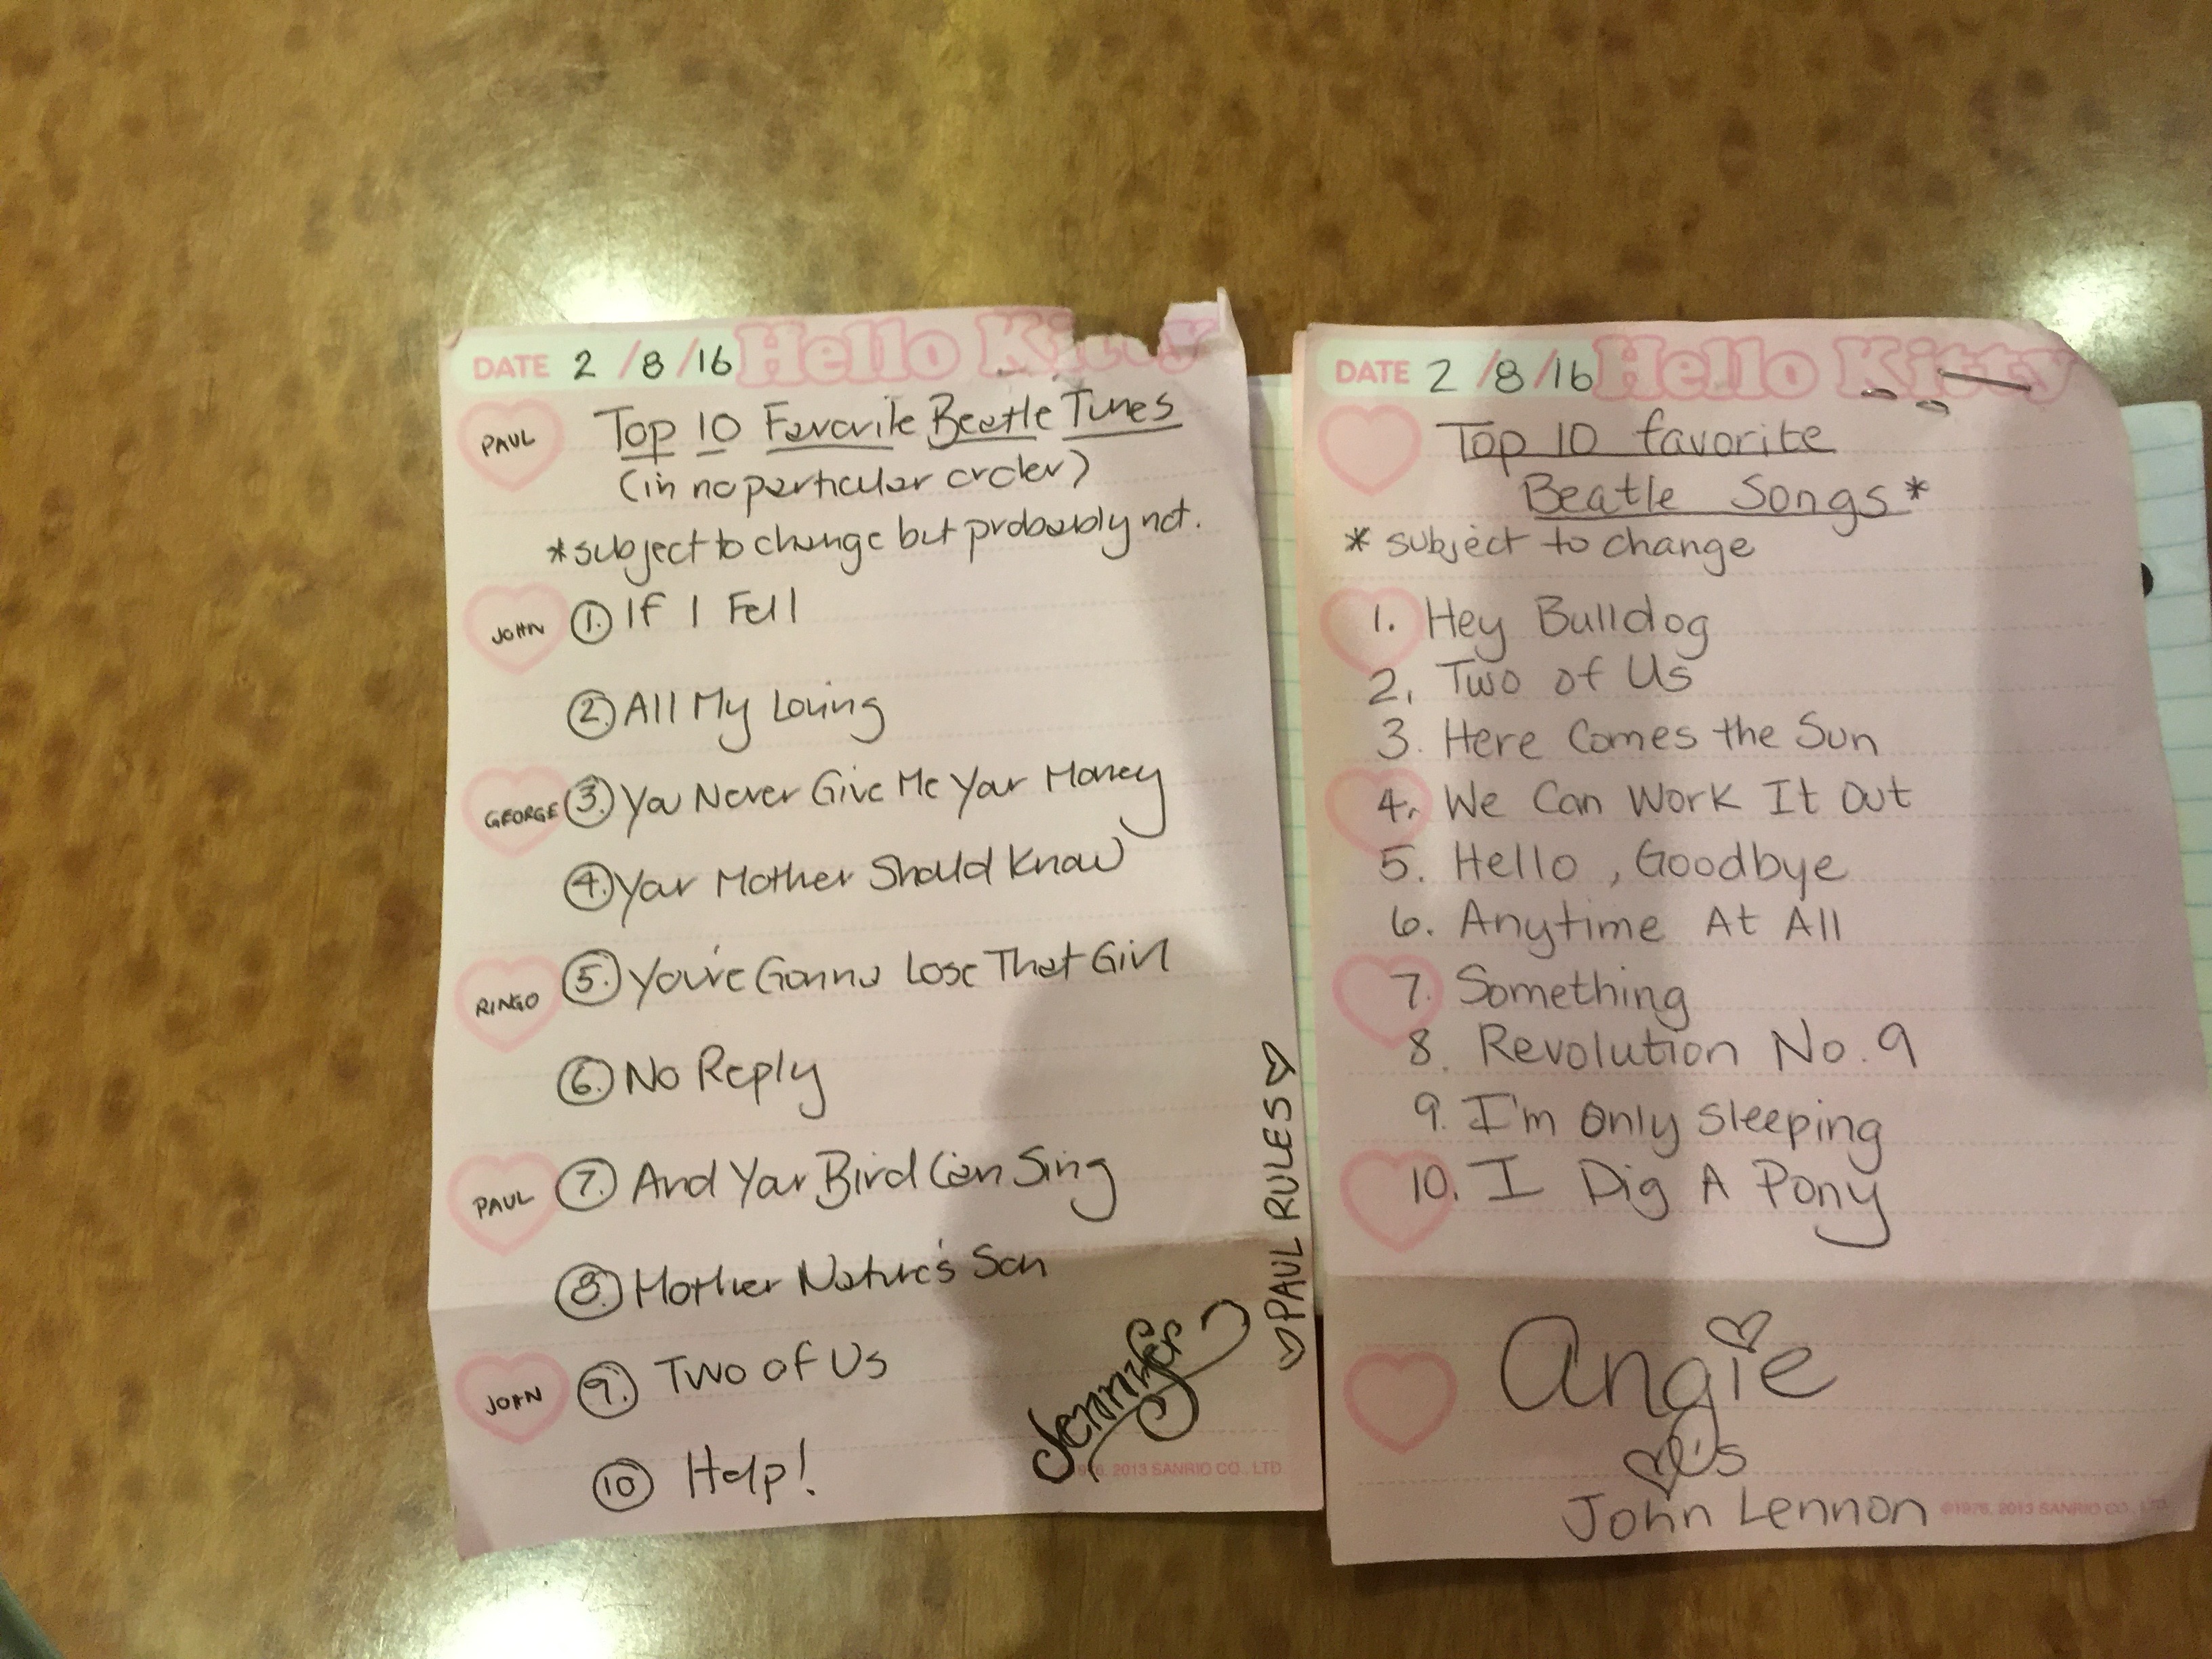 DATE 2/8/16 Hello Kitty
PAUL Top 10 Favorite Beatle Tunes
(in no particular order)
*subject to change but probably not.
JOHN 1. If I Fell
2. All My Loving
GEORGE 3. You Never Give Me Your Money
4. Your Mother Should Know
RINGO 5. You're Gonna Lose That Girl
6. No Reply
PAUL 7. And Your Bird Can Sing
8. Mother Nature's Son
JOHN 9. Two of Us
10 Help!
Jennifer
♡PAUL RULES♡
76, 2013 SANRIO CO., LTD.
DATE 2/8/16 Hello Kitty
Top 10 favorite
Beatle Songs*
* subject to change
1. Hey Bulldog
2. Two of Us
3. Here Comes the Sun
4. We Can Work It Out
5. Hello, Goodbye
6. Anytime At All
7. Something
8. Revolution No. 9
9. I'm Only Sleeping
10. I Dig A Pony
Angie
♡'s
John Lennon
©1976, 2013 SANRIO CO., LTD.